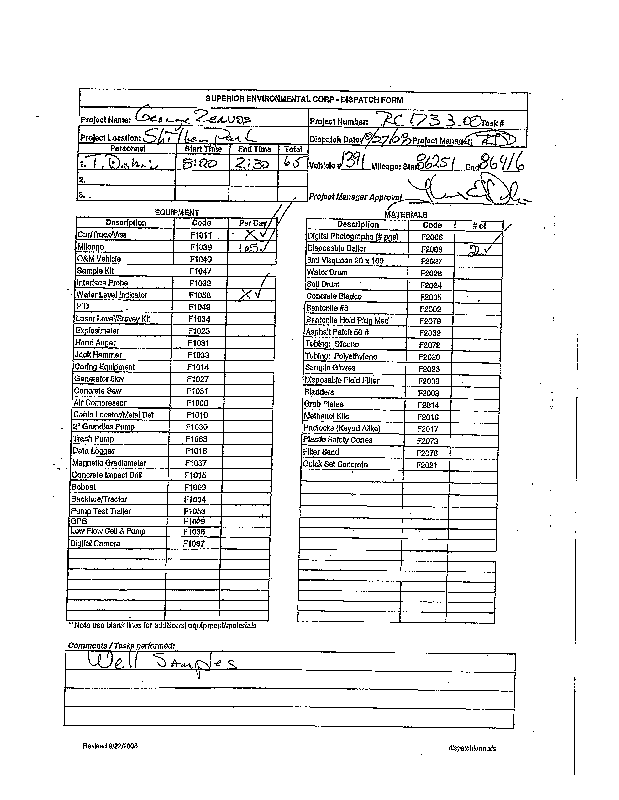 SUPERIOR ENVIRONMENTAL CORP - DISPATCH FORM
Project Name: George Project Number: RC1733.00 Task #
Project Location: Park Dispatch Date: Project Manager:
Personnel Start Time End Time Total
1. T. 8:00 2:30 6.5 Vehicle # 391 Mileage: Start 86251 End 86416
2.
3. Project Manager Approval
EQUIPMENT MATERIALS
Description Code Per Day Description Code # of
Car/Truck/Van F1011 X ✓ Digital Photographs (# pgs) F2006
Mileage F1039 165 ✓ Disposable Bailer 2 ✓
O&M Vehicle F1040 Visqueen 20 x 100
Sample Kit F1047 Water Drum F2026
Interface Probe F1032 Soil Drum F2024
Water Level Indicator F1058 X ✓ Concrete
PID F1043 Bentonite #8 F2002
Laser Level/Survey Kit F1034 Bentonite Hole Plug Med F2079
Explosimeter F1025 Asphalt Patch 50 #
Hand Auger F1031 Tubing: F2072
Jack Hammer F1033 Tubing: Polyethylene F2020
Coring Equipment F1014 Sample Gloves F2023
Generator 5kw F1027 Disposable Field Filter
Concrete Saw F1051 Bladders F2003
Air Compressor Grab Plates F2014
Cable Locator/Metal Det F1010 Methanol Kits F2016
2" Grundfos Pump F1030 Padlocks (Keyed Alike) F2017
Trash Pump Plastic Safety Cones F2073
Data Logger F1016 Filter Sand F2076
Magnetic Gradiometer F1037 Quick Set Concrete F2021
Concrete Impact Drill F1015
Bobcat
Backhoe/Tractor F1004
Pump Test Trailer F1053
GPS F1029
Low Flow Cell & Pump F1036
Digital Camera F1067
**Note use blank lines for additional equipment/materials
Comments / Tasks performed:
Well Samples
Revised 8/22/2008 dispatchform.xls